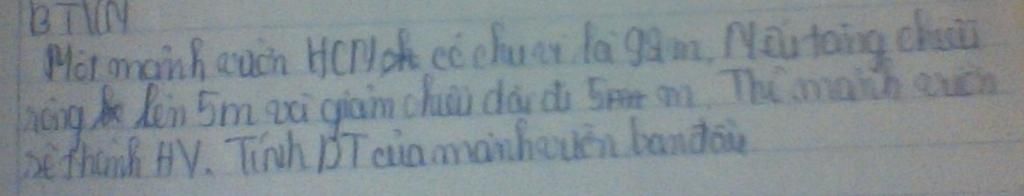 BTVN
Một mảnh vườn HCN có chu vi là 92m. Nếu tăng chiều
rộng lên 5m và giảm chiều dài đi 5m. Thì mảnh vườn
sẽ thành HV. Tính DT của mảnh vườn ban đầu